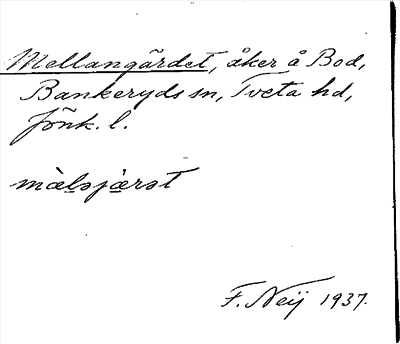 Mellangärdet, åker å Bod,
Bankeryds sn, Tveta hd,
Jönk. l.
F. Neij 1937.